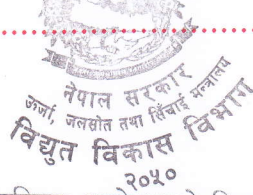 नेपाल सरकार
ऊर्जा, जलस्रोत तथा सिँचाई मन्त्रालय
विद्युत विकास विभाग
२०५०